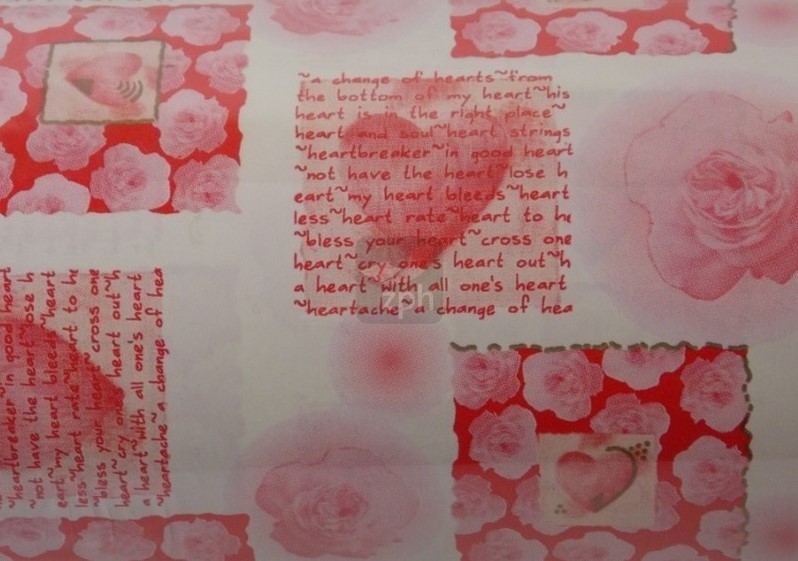 ~a change of hearts~from
the bottom of my heart~his
heart is in the right place~
heart and soul~heart strings
~heartbreaker~in good heart
~not have the heart~lose h
eart~my heart bleeds~heart
less~heart rate~heart to he
~bless your heart~cross one
heart~cry one's heart out~h
a heart~with all one's heart
~heartache~a change of hea
zph
~heartbreaker~in good heart
~not have the heart~lose h
eart~my heart bleeds~heart
less~heart rate~heart to he
~bless your heart~cross one
heart~cry one's heart out~h
a heart~with all one's heart
~heartache~a change of hea